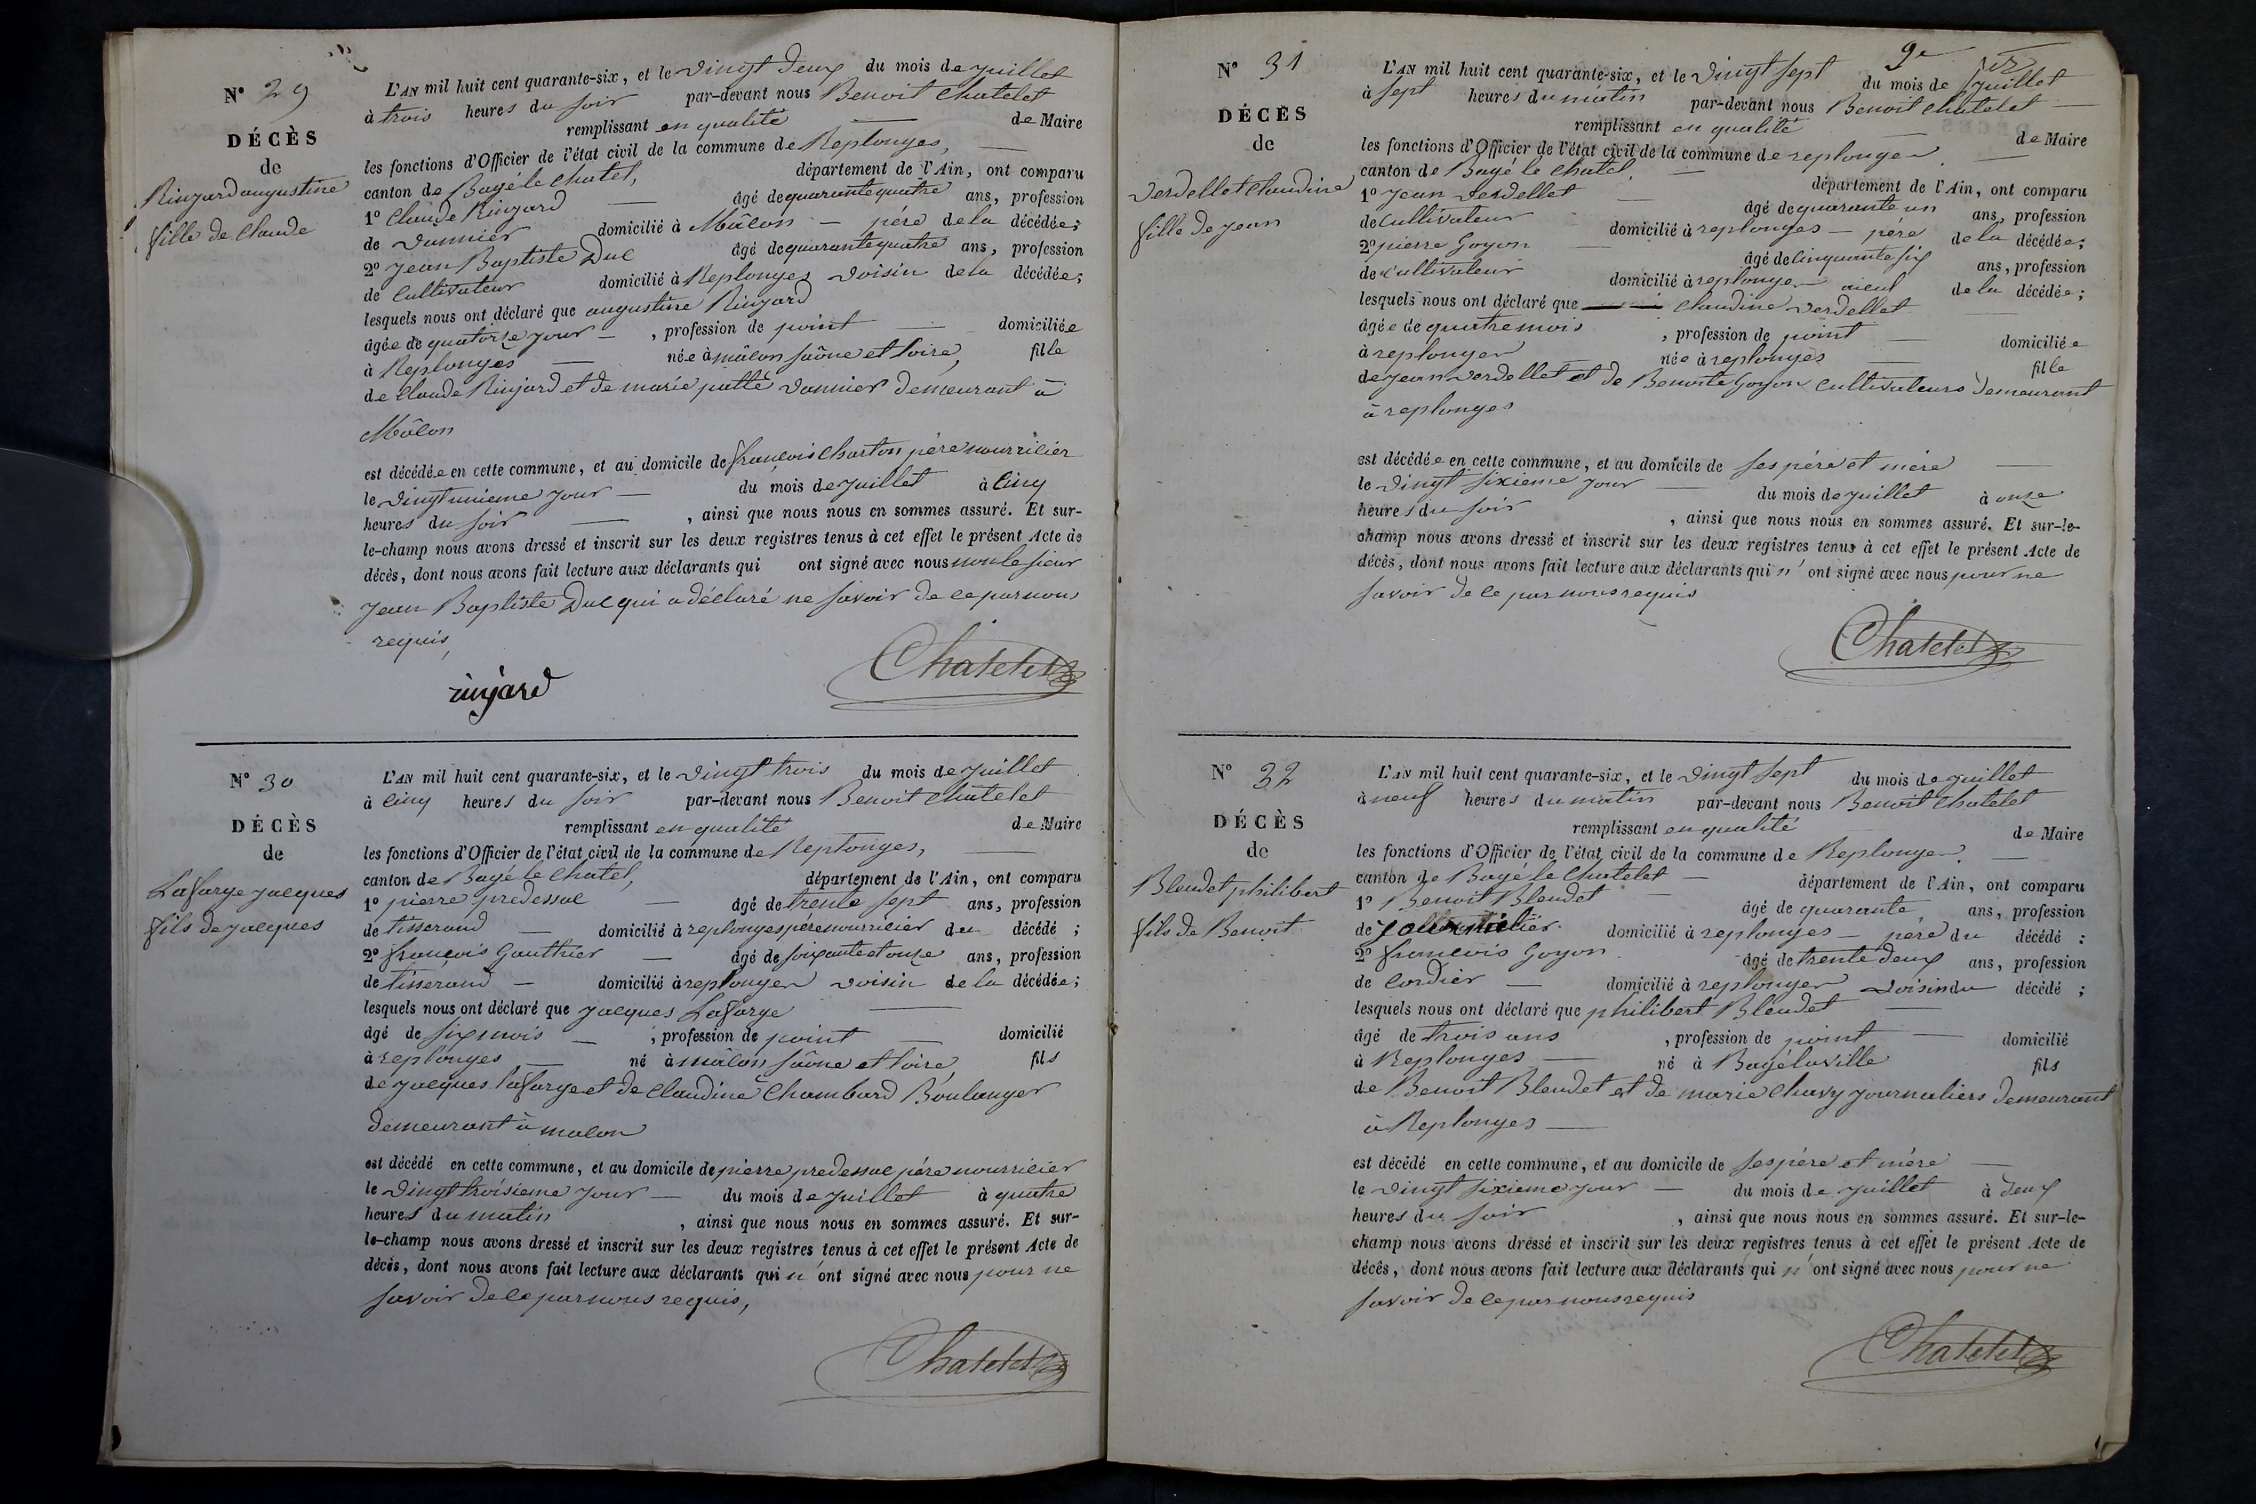 N° 29
DÉCÈS
de
Rinjard augustine
fille de Claude
L'AN mil huit cent quarante-six, et le vingt deux du mois de juillet
à trois heures du soir par-devant nous Benoit Chatelet
remplissant en qualité de Maire
les fonctions d'Officier de l'état civil de la commune de Replonges,
canton de Bagé le chatel, département de l'Ain, ont comparu
1° Claude Rinjard âgé de quarante quatre ans, profession
de vannier domicilié à Mâcon père de la décédée;
2° Jean Baptiste Duc âgé de quarante quatre ans, profession
de Cultivateur domicilié à Replonges voisin de la décédée;
lesquels nous ont déclaré que augustine Rinjard
âgée de quatorze jour, profession de point domiciliée
à Replonges née à mâcon saône et loire, fille
de Claude Rinjard et de marie patté vannier demeurant à
Mâcon
est décédée en cette commune, et au domicile de françois Charton père nourricier
le vingt unieme jour du mois de juillet à Cinq
heures du soir, ainsi que nous nous en sommes assuré. Et sur-
le-champ nous avons dressé et inscrit sur les deux registres tenus à cet effet le présent Acte de
décès, dont nous avons fait lecture aux déclarants qui ont signé avec nous non le sieur
Jean Baptiste Duc qui a déclaré ne savoir de ce par nous
requis,
rinjard
Chatelet
N° 30
DÉCÈS
de
Lafarge jacques
fils de jacques
L'AN mil huit cent quarante-six, et le vingt trois du mois de juillet
à Cinq heures du soir par-devant nous Benoit Chatelet
remplissant en qualité de Maire
les fonctions d'Officier de l'état civil de la commune de Replonges,
canton de Bagé le chatel, département de l'Ain, ont comparu
1° pierre predessac âgé de trente sept ans, profession
de tisserand domicilié à replonges père nourricier du décédé;
2° françois Gauthier âgé de soixante et onze ans, profession
de tisserand domicilié à replonges voisin de la décédée;
lesquels nous ont déclaré que jacques Lafarge
âgé de six mois, profession de point domicilié
à replonges né à mâcon saône et loire, fils
de jacques lafarge et de Claudine Chambard Boulanger
demeurant à macon
est décédé en cette commune, et au domicile de pierre predessac père nourricier
le vingt troisieme jour du mois de juillet à quatre
heures du matin, ainsi que nous nous en sommes assuré. Et sur-
le-champ nous avons dressé et inscrit sur les deux registres tenus à cet effet le présent Acte de
décès, dont nous avons fait lecture aux déclarants qui n'ont signé avec nous pour ne
savoir de ce par nous requis,
Chatelet
9e
N° 31
DÉCÈS
de
verdellet Claudine
fille de jean
L'AN mil huit cent quarante-six, et le vingt sept du mois de juillet
à sept heures du matin par-devant nous Benoit Chatelet
remplissant en qualité de Maire
les fonctions d'Officier de l'état civil de la commune de replonges
canton de Bagé le chatel. département de l'Ain, ont comparu
1° jean verdellet âgé de quarante un ans, profession
de cultivateur domicilié à replonges père de la décédée;
2° pierre Goyon âgé de cinquante six ans, profession
de cultivateur domicilié à replonges aieul de la décédée;
lesquels nous ont déclaré que Claudine verdellet
âgée de quatre mois, profession de point domiciliée
à replonges née à replonges fille
de jean verdellet et de Benoite Goyon cultivateurs demeurant
à replonges
est décédée en cette commune, et au domicile de ses père et mère
le vingt sixieme jour du mois de juillet à onze
heures du soir, ainsi que nous nous en sommes assuré. Et sur-le-
champ nous avons dressé et inscrit sur les deux registres tenus à cet effet le présent Acte de
décès, dont nous avons fait lecture aux déclarants qui n'ont signé avec nous pour ne
savoir de ce par nous requis
Chatelet
N° 32
DÉCÈS
de
Bleudet philibert
fils de Benoit
L'AN mil huit cent quarante-six, et le vingt sept du mois de juillet
à neuf heures du matin par-devant nous Benoit Chatelet
remplissant en qualité de Maire
les fonctions d'Officier de l'état civil de la commune de Replonges.
canton de Bagé le Chatelet département de l'Ain, ont comparu
1° Benoit Bleudet âgé de quarante ans, profession
de domicilié à replonges père du décédé;
2° françois Goyon âgé de trente deux ans, profession
de Cordier domicilié à replonges voisin du décédé;
lesquels nous ont déclaré que philibert Bleudet
âgé de trois ans, profession de point domicilié
à Replonges né à Bagé la ville fils
de Benoit Bleudet et de marie Chavy journaliers demeurant
à Replonges
est décédé en cette commune, et au domicile de ses père et mère
le vingt sixieme jour du mois de juillet à deux
heures du soir, ainsi que nous nous en sommes assuré. Et sur-le-
champ nous avons dressé et inscrit sur les deux registres tenus à cet effet le présent Acte de
décès, dont nous avons fait lecture aux déclarants qui n'ont signé avec nous pour ne
savoir de ce par nous requis
Chatelet